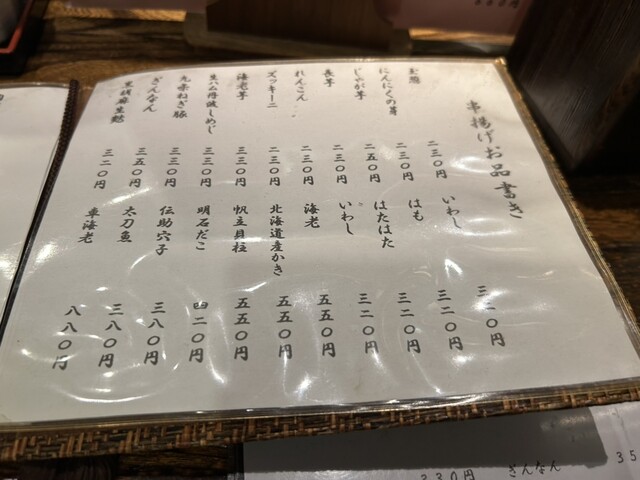 串揚げお品書き
玉葱 二三〇円
にんにくの芽 二三〇円
じゃが芋 二五〇円
長芋 二三〇円
れんこん 二三〇円
ズッキーニ 二三〇円
海老芋 三三〇円
生ハム丹波しめじ 三三〇円
九条ねぎ豚 三三〇円
ぎんなん 三五〇円
黒胡麻生麩 三二〇円
いわし 三一〇円
はも 三二〇円
はたはた 三二〇円
いわし 三二〇円
海老 五五〇円
北海道産かき 五五〇円
帆立貝柱 五五〇円
明石だこ 四二〇円
伝助穴子 三八〇円
太刀魚 三八〇円
車海老 八八〇円
330円 ぎんなん 35